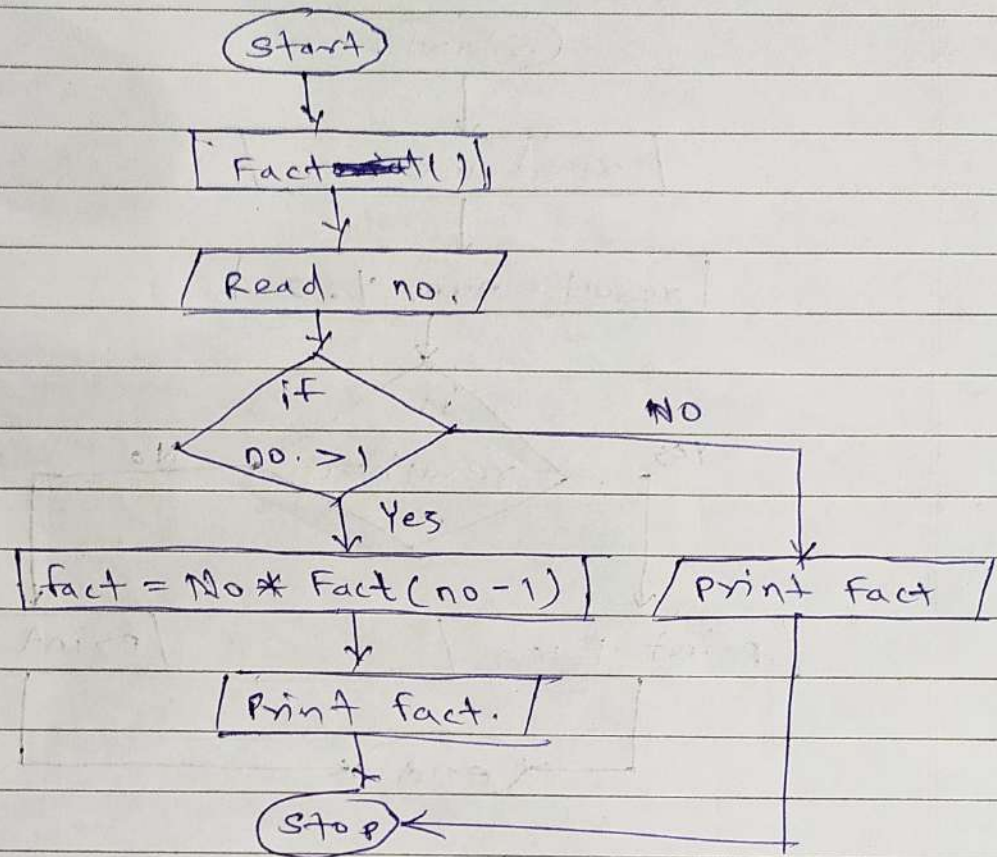 Start
Fact ()
Read no.
if
no. > 1
NO
Yes
fact = No * Fact (no - 1)
Print Fact
Print fact.
Stop